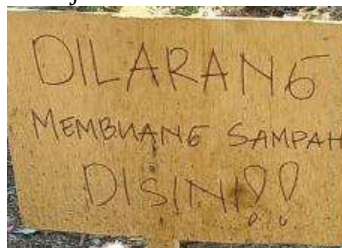 DILARANG
MEMBUANG SAMPAH
DISINI!!